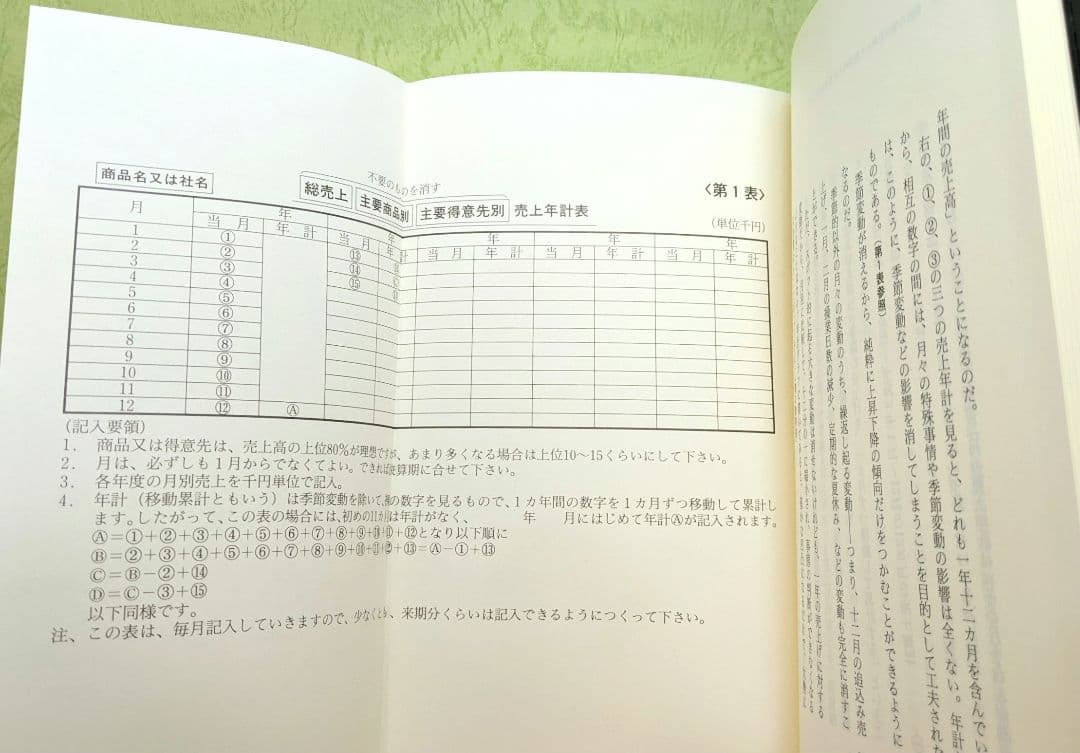 〈第1表〉
商品名又は社名
不要のものを消す
総売上 主要商品別 主要得意先別 売上年計表
(単位千円)
月 年 年 年 年 年
当月 年計 当月 年計 当月 年計 当月 年計 当月 年計
1 ①
2 ② ⑬
3 ③ ⑭
4 ④ ⑮
5 ⑤
6 ⑥
7 ⑦
8 ⑧
9 ⑨
10 ⑩
11 ⑪
12 ⑫ Ⓐ
(記入要領)
1. 商品又は得意先は、売上高の上位80%が理想ですが、あまり多くなる場合は上位10~15くらいにして下さい。
2. 月は、必ずしも1月からでなくてよい。できれば決算期に合せて下さい。
3. 各年度の月別売上を千円単位で記入。
4. 年計(移動累計ともいう)は季節変動を除いて、裸の数字を見るもので、1カ年間の数字を1カ月ずつ移動して累計し
ます。したがって、この表の場合には、初めの11カ月は年計がなく、 年 月にはじめて年計Ⓐが記入されます。
Ⓐ=①+②+③+④+⑤+⑥+⑦+⑧+⑨+⑩+⑪+⑫となり以下順に
Ⓑ=②+③+④+⑤+⑥+⑦+⑧+⑨+⑩+⑪+⑫+⑬=Ⓐ-①+⑬
Ⓒ=Ⓑ-②+⑭
Ⓓ=Ⓒ-③+⑮
以下同様です。
注、この表は、毎月記入していきますので、少なくとも、来期分くらいは記入できるようにつくって下さい。
年間の売上高」ということになるのだ。
右の、①、②、③の三つの売上年計を見ると、どれも一年十二カ月を含んでい
から、相互の数字の間には、月々の特殊事情や季節変動の影響は全くない。年計
は、このように、季節変動などの影響を消してしまうことを目的として工夫された
ものである。(第1表参照)
季節変動が消えるから、純粋に上昇下降の傾向だけをつかむことができるように
なるのだ。
季節的以外の月々の変動のうち、繰返し起る変動――つまり、十二月の追込み売
上げ、一月、二月の操業日数の減少、定期的な夏休み、などの変動も完全に消すこ
とができる。